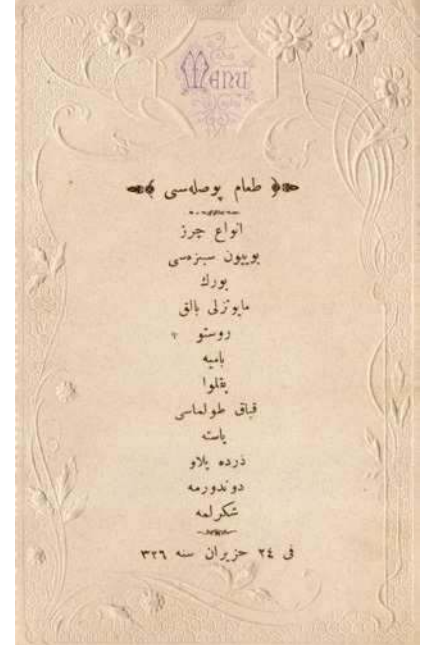 Menu
طعام پوصله‌سی
انواع چرز
بوييون سبزه‌سی
بورك
مايونزلی بالق
روستو
باميه
بقلوا
قباق طولماسی
پاسته
زرده پلاو
دوندورمه
شكرلمه
فی ٢٤ حزيران سنه ٣٢٦